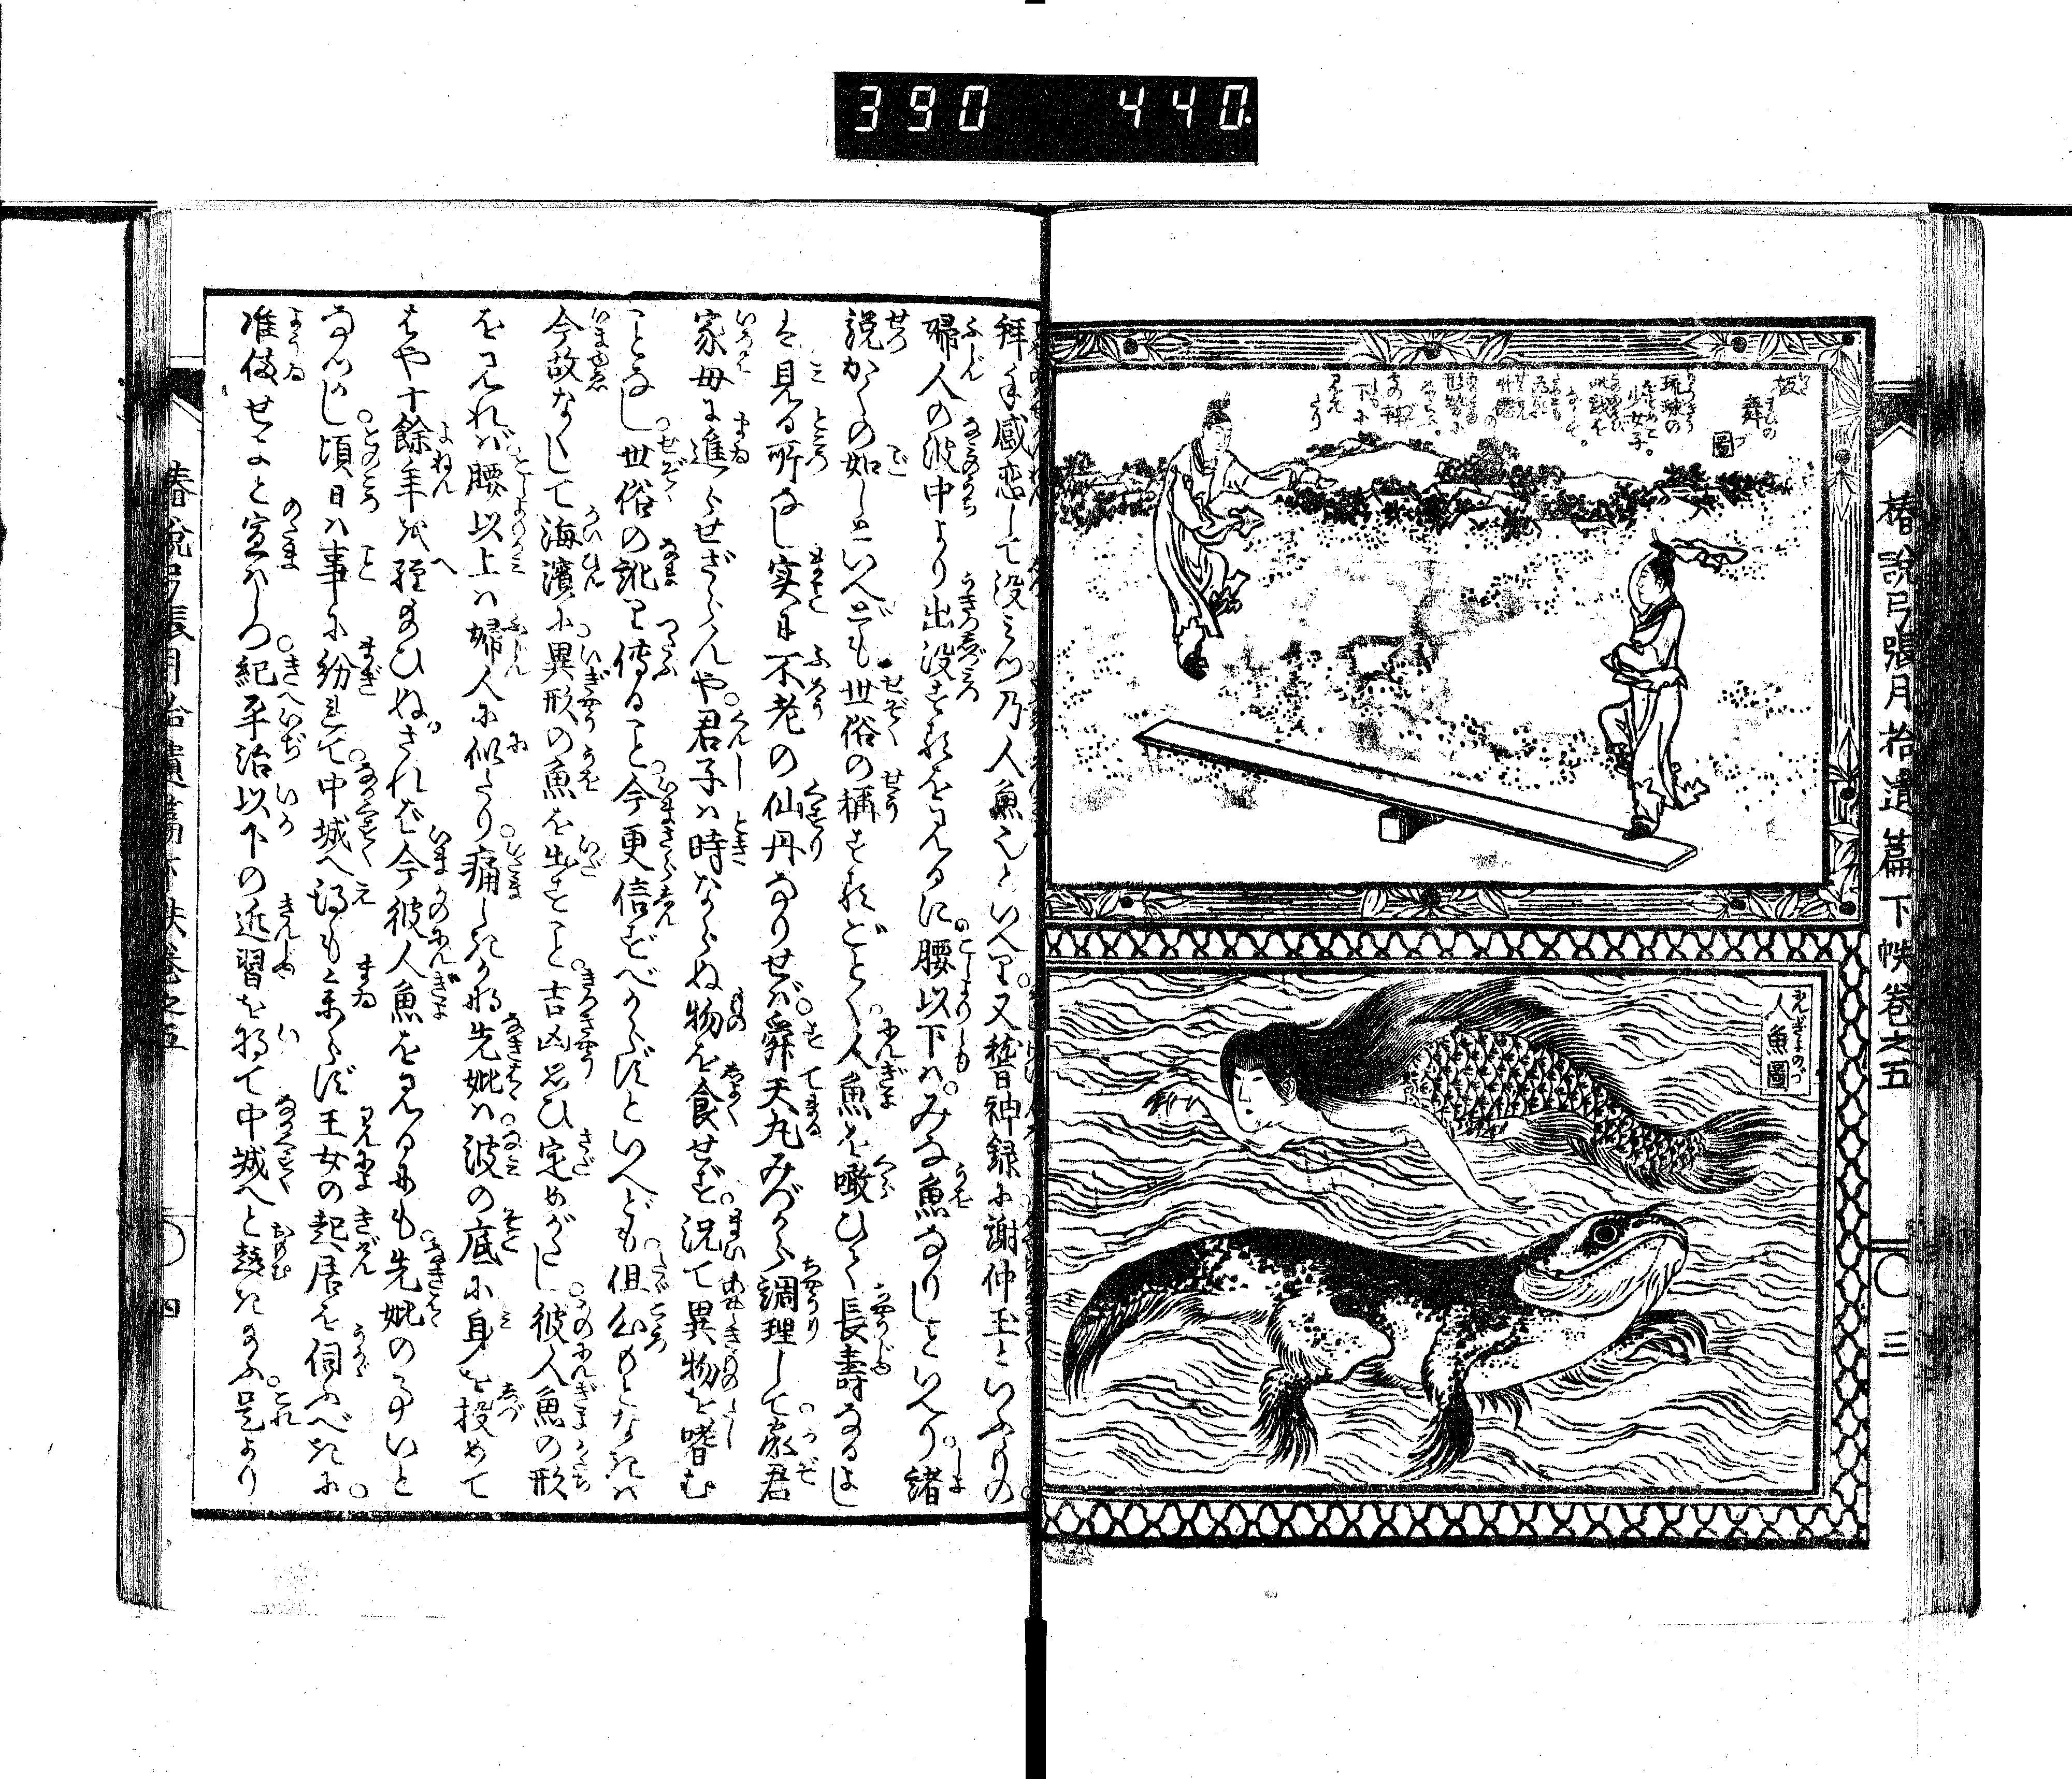 390 440.
椿説弓張月拾遺篇下帙卷之五
三
板
舞の
圖
琉球の
少女子。
人魚圖
にんぎよのづ
拜手感恋して没しつ乃人魚也といへり。又稽神録に謝仲玉といふもの
婦人の波中より出没するを見るに腰以下は。みな魚なりしといへり。諸
説かくの如しといへども世俗の稱するごとく人魚を噉ひて長壽なるよし
は見る所なし実に不老の仙丹なりせば。舜天丸みづから調理して家君
家母に進らせざらんや。君子は時ならぬ物を食せず。況て異物を嗜む
ことなし。世俗の訛り傳ること。今更信ずべからずといへども。但心もとなきは
今故なくして海濱に。異形の魚を出すこと。吉凶思ひ定めがたし。彼人魚の形
を見れば。腰以上は婦人に似たり。痛しきかな先妣は。波の底に身を投めて
はや十餘年を經給ひぬ。されば今彼人魚を見るにも。先妣の事いと
なつかし。頃日は事に紛れて。中城へ得も參らず。王女の起居を伺ふべきに。
准備せよと宣はしつ。紀平治以下の近習を將て中城へと赴き給ふ。是より
椿説弓張月拾遺篇下帙卷之五
四